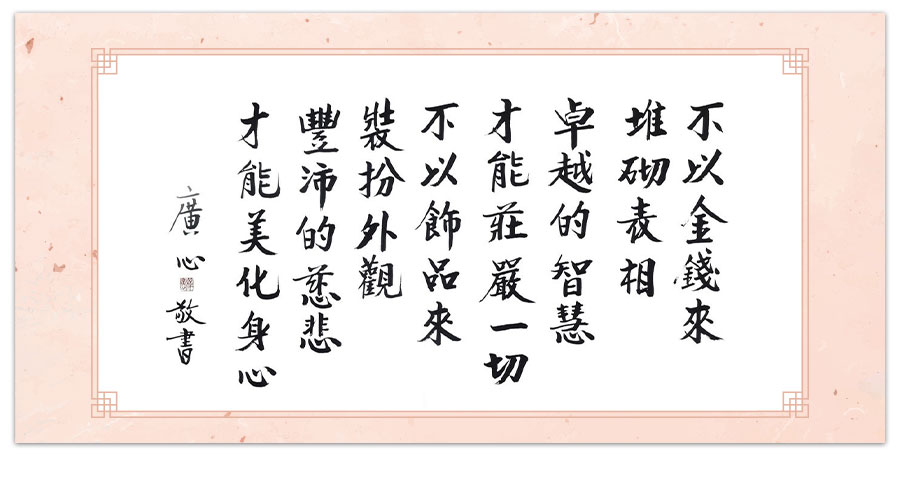 不以金錢來
堆砌表相
卓越的智慧
才能莊嚴一切
不以飾品來
裝扮外觀
豐沛的慈悲
才能美化身心
廣心敬書